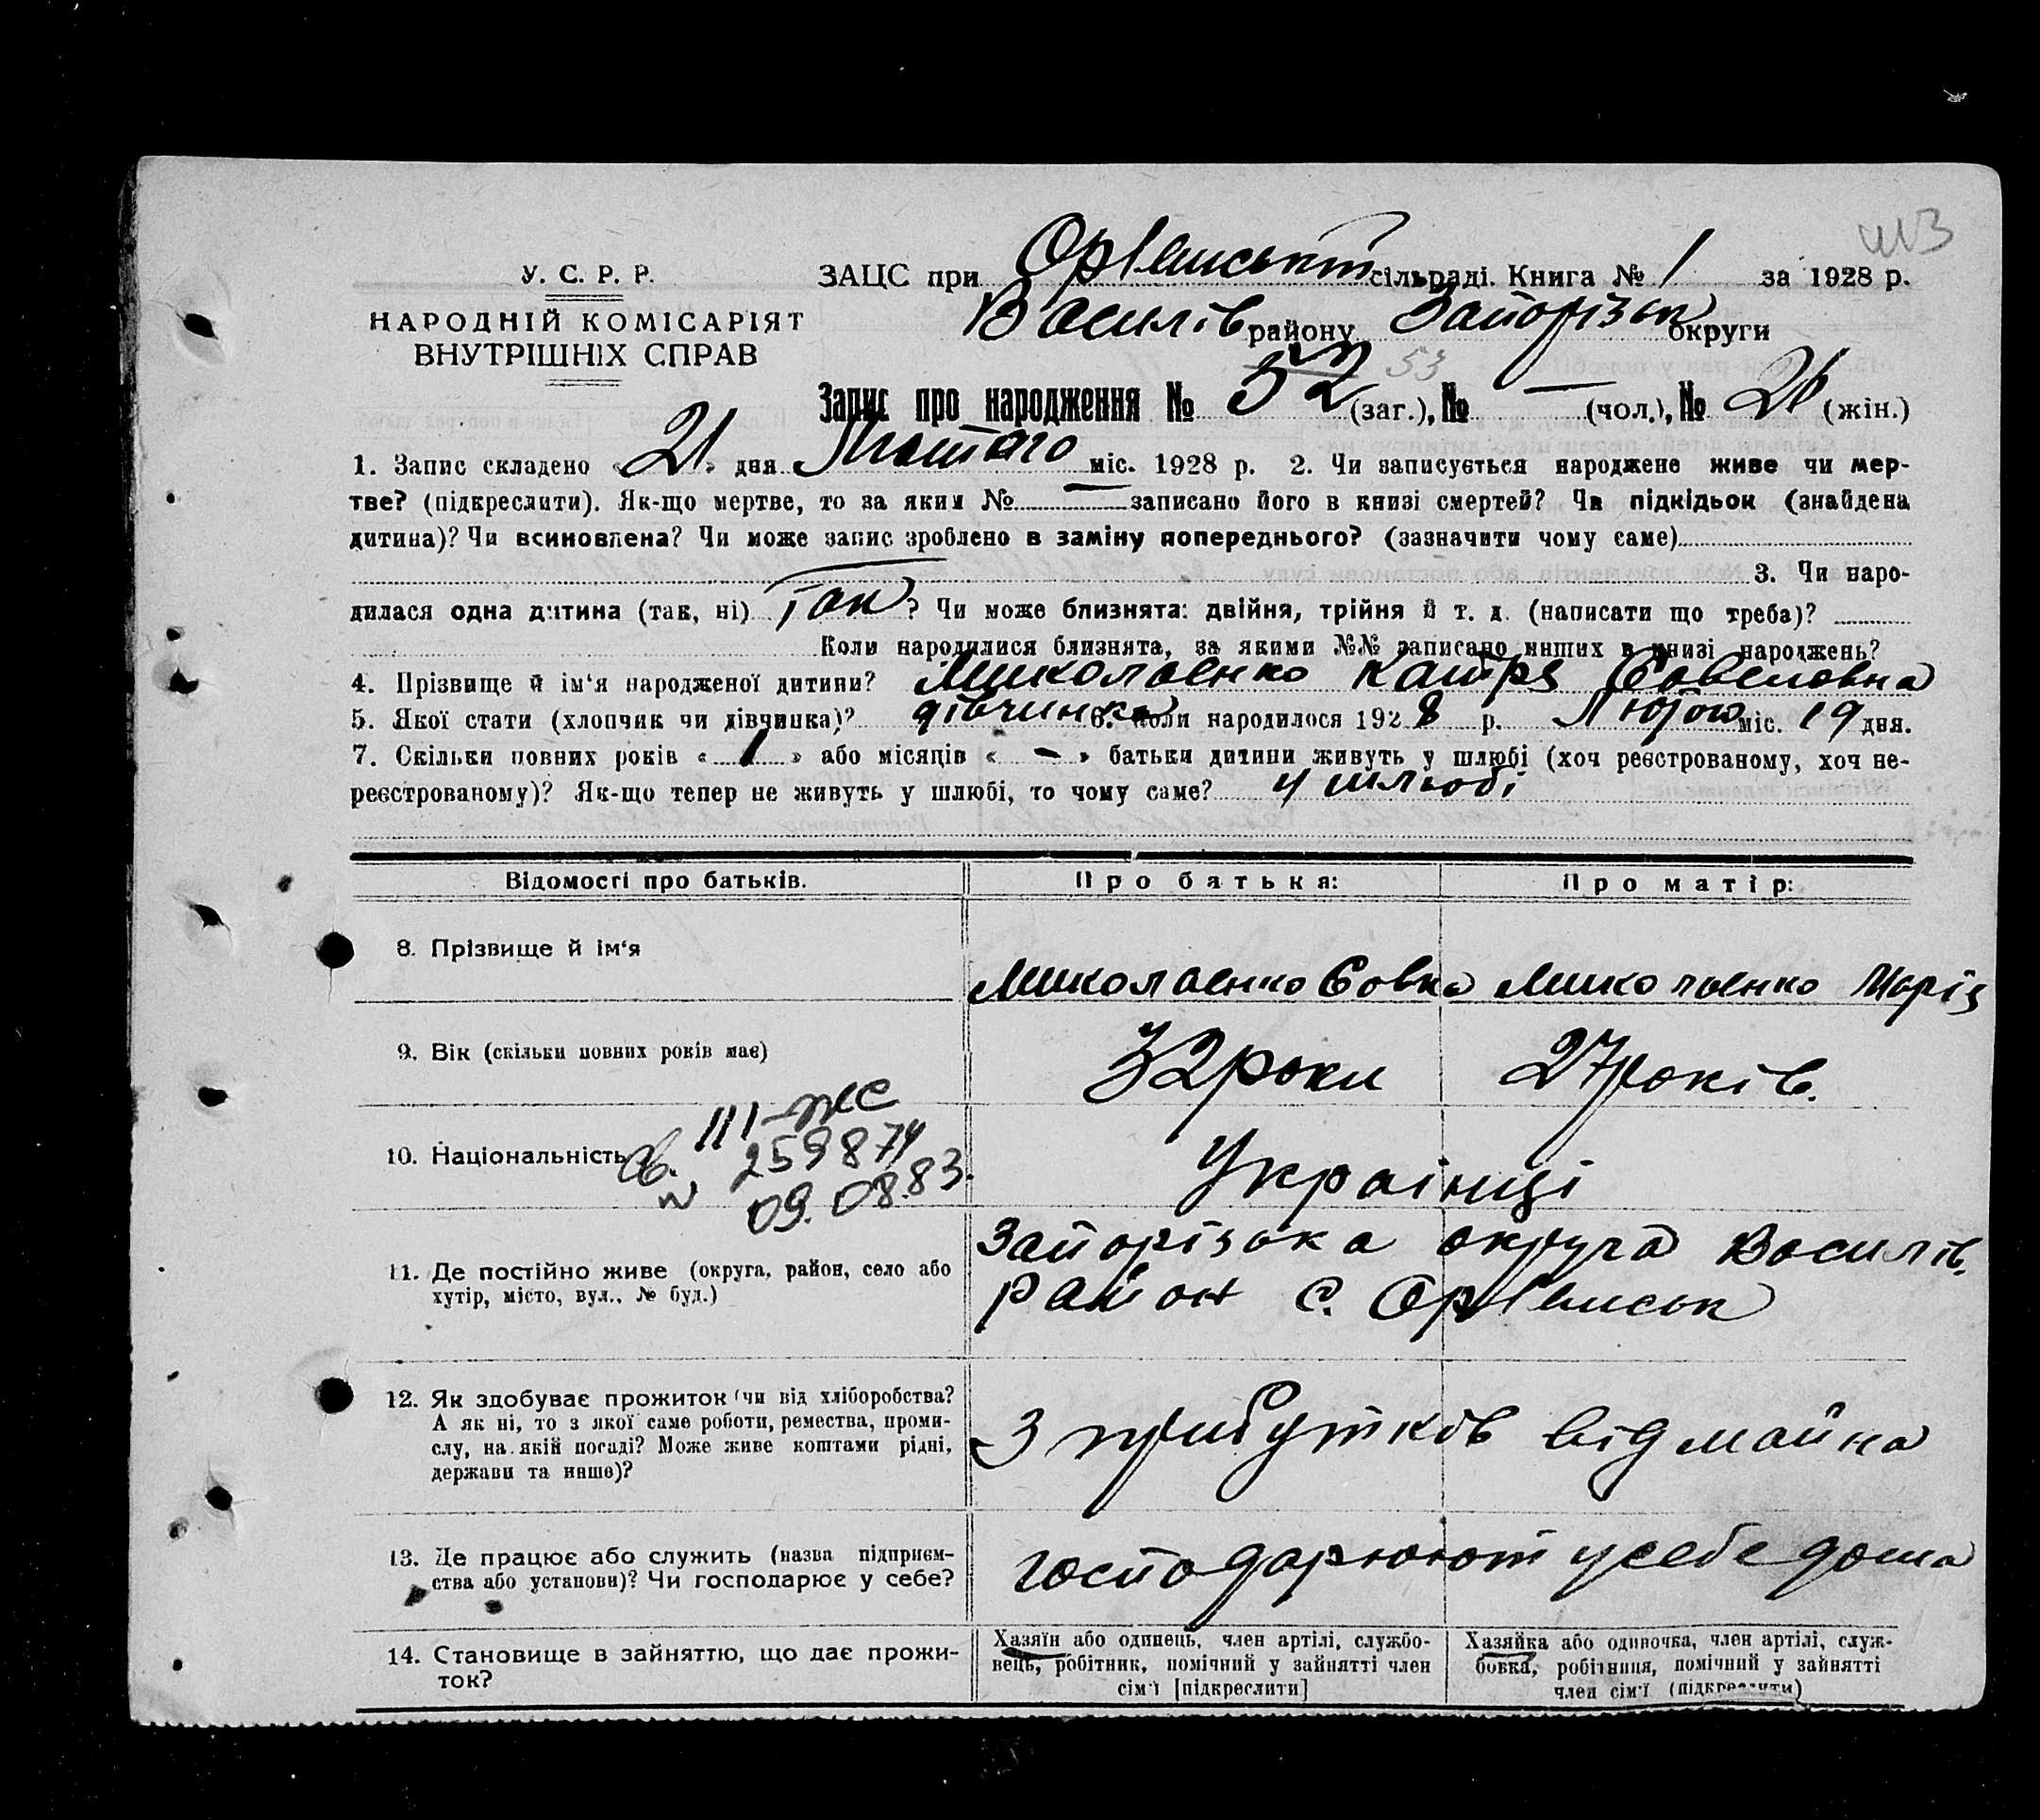 ш3
У. С. Р. Р.
НАРОДНІЙ КОМІСАРІЯТ
ВНУТРІШНІХ СПРАВ
ЗАЦС при Орлянській сільраді. Книга № 1 за 1928 р.
Василів району Запорізьк округи
Запис про народження № 52 53 (заг.), № — (чол.), № 26 (жін.)
1. Запис складено «21» дня Лютаго міс. 1928 р. 2. Чи записується народжене живе чи мер-
тве? (підкреслити). Як-що мертве, то за яким № — записано його в книзі смертей? Чи підкідьок (знайдена
дитина)? Чи всиновлена? Чи може запис зроблено в заміну попереднього? (зазначити чому саме)
3. Чи наро-
дилася одна дитина (так, ні) Так? Чи може близнята: двійня, трійня й т. д. (написати що треба)?
Коли народилися близнята, за якими №№ записано инших в книзі народжень?
4. Прізвище й ім'я народженої дитини? Миколаенко Катря Савеловна
5. Якої стати (хлопчик чи дівчинка)? дівчинка 6. Коли народилося 1928 р. Лютого міс. 19 дня.
7. Скільки повних років «1» або місяців «-» батьки дитини живуть у шлюбі (хоч реєстрованому, хоч не-
реєстрованому)? Як-що тепер не живуть у шлюбі, то чому саме? у шлюбі
Відомості про батьків. Про батька: Про матір:
8. Прізвище й ім'я Миколаенко Савка Миколаенко Марія
9. Вік (скільки повних років має) 32 роки 27 років.
10. Національність Українці
III-ЖС
259874
09.08.83.
11. Де постійно живе (округа, район, село або
хутір, місто, вул., № буд.)
Запорізька округа Василів.
район с. Орлянськ
12. Як здобуває прожиток (чи від хліборобства?
А як ні, то з якої саме роботи, ремества, проми-
слу, на якій посаді? Може живе коштами рідні,
держави та инше)?
З прибутків від майна
13. Де працює або служить (назва підприєм-
ства або установи)? Чи господарює у себе?
господарюют у себе дома
14. Становище в зайняттю, що дає прожи-
ток?
Хазяїн або одинець, член артілі, службо-
вець, робітник, помічний у зайнятті член
сім'ї [підкреслити]
Хазяйка або одиночка, член артілі, служ-
бовка, робітниця, помічний у зайнятті
член сім'ї (підкреслити)